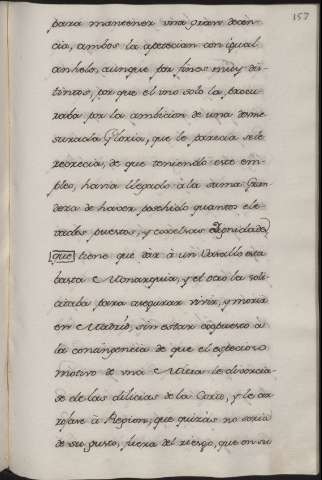 157
para mantener una gran decen-
cia, ambos la apetecian con igual
anhelo, aunque por fines muy dis-
tintos, por que el uno solo la procu-
raba por la ambicion de una desme
surada Gloria, que le parecia se le
recrecia, de que teniendo este em-
pleo, havia llegado à la suma Gran
deza de haver posehido quantos ele-
vados puestos, y excelsas Dignidades
que tiene que dar à un Vasallo esta
basta Monarquia, y el otro la soli-
citaba para asegurar vivir, y morir
en Madrid, sin estar expuesto à
la contingencia de que el especioso
motivo de una Mitra le divorcia-
se de las dilicias de la Corte, y le ar
rojase à Region, que quizàs no seria
de su gusto, fuera del riesgo, que en su